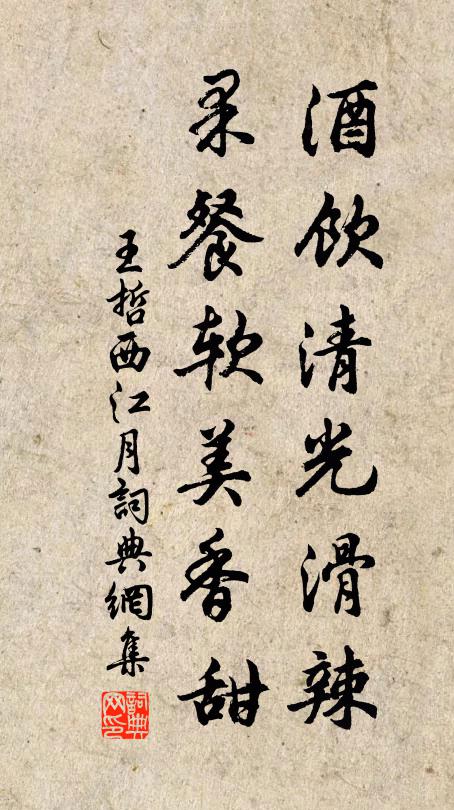 酒飲清光滑辣
果餐软美香甜
王哲西江月詞典網集
詞典网印